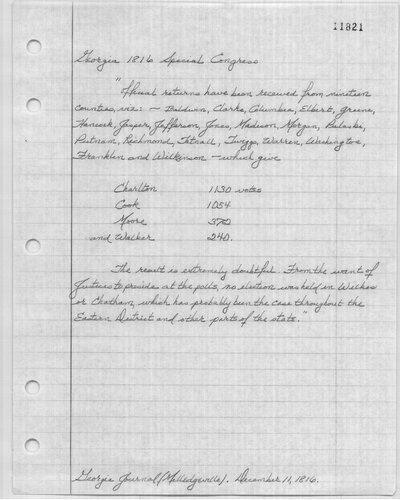 11821
Georgia 1816 Special Congress
"Official returns have been received from nineteen
counties, viz: – Baldwin, Clarke, Columbia, Elbert, Greene,
Hancock, Jasper, Jefferson, Jones, Madison, Morgan, Pulaski,
Putnam, Richmond, Tatnall, Twiggs, Warren, Washington,
Franklin and Wilkenson – which give
Charlton 1130 votes
Cook 1054
Moore 370
and Walker 240.
The result is extremely doubtful. From the want of
Justices to preside at the polls, no election was held in Wilkes
or Chatham, which has probably been the case throughout the
Eastern District and other parts of the state."
Georgia Journal (Milledgeville). December 11, 1816.